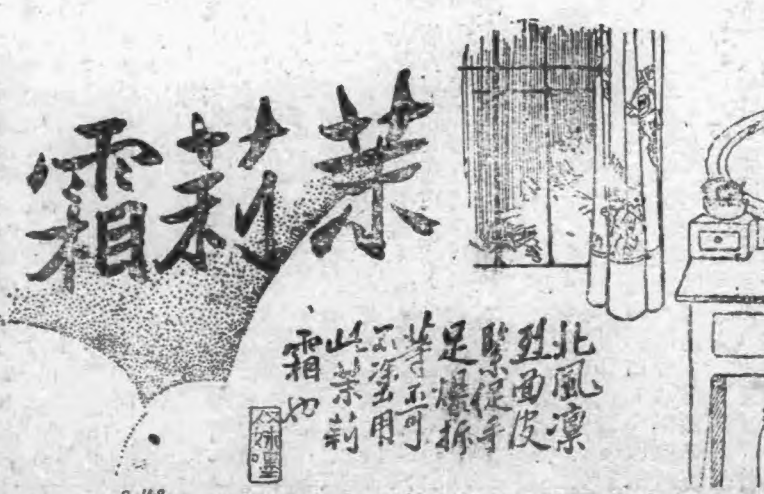 茉莉霜
北風凜
烈面皮
緊促手
足爆拆
等不可
不塗用
此茉莉
霜也